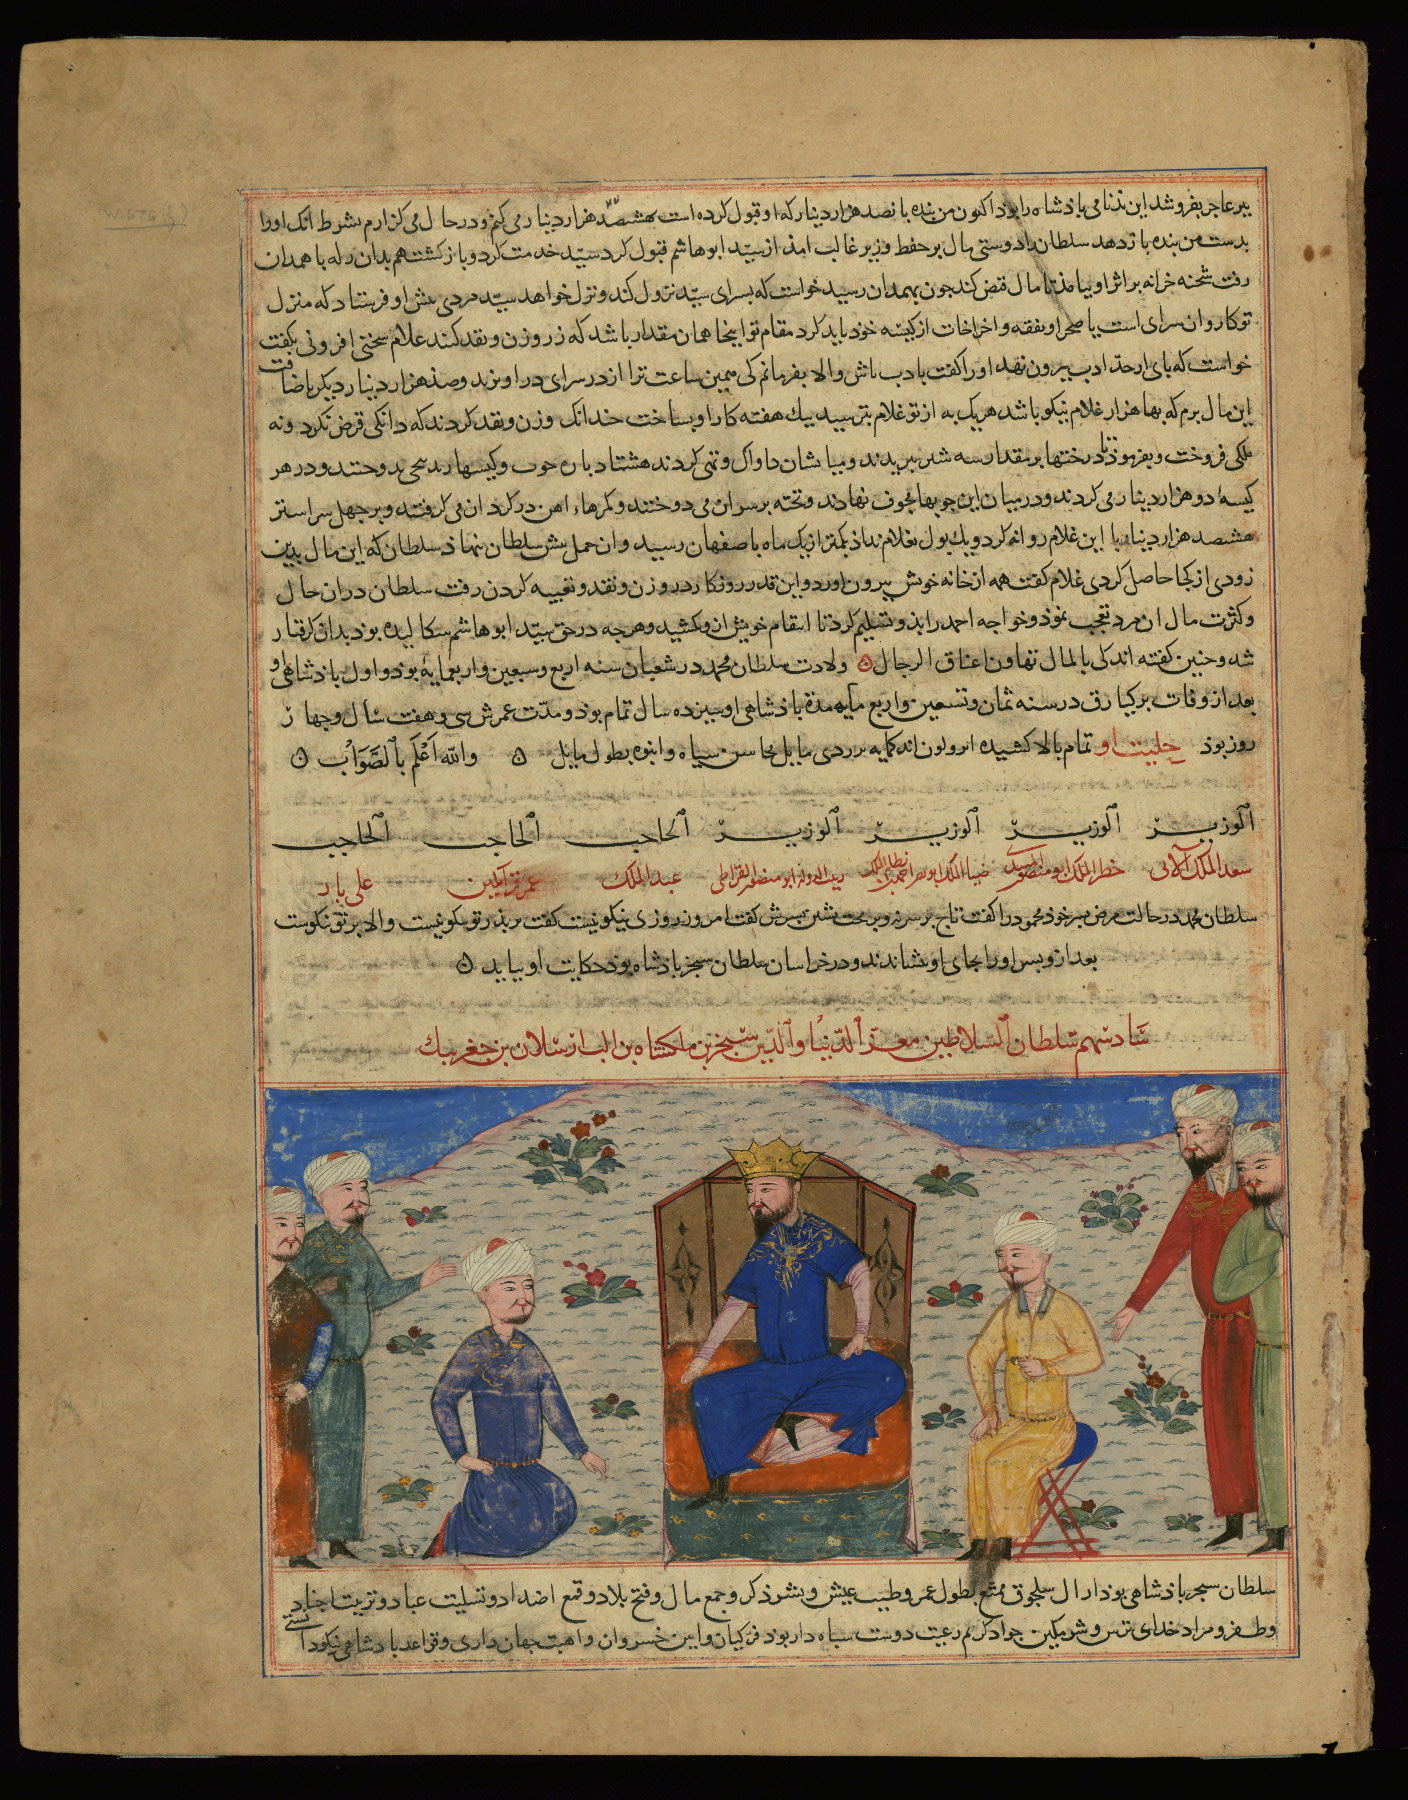 پیر عاجز بفروشد این بدنامی پادشاه را بوذ اکنون من بنده پانصد هزار دینار که او قبول کرده است هشصد هزار دینار می کنم و در حال می گزارم بشرط آنک او را
بدست من بنده باز دهد سلطان را دوستی مال بر حفظ وزیر غالب آمذ از سیّد ابوهاشم قبول کرد سیّد خدمت کرد و بازگشت هم بدان راه با همدان
رفت شحنه خزانه بر اثر او بیامذ تا مال قبض کند چون بهمدان رسید خواست که بسرای سیّد نزول کند و نزل خواهد سیّد مردی پیش او فرستاد که منزل
تو کاروان سرای است یا صحرا و نفقه و اخراجات از کیسه خود باید کرد مقام تو اینجا همان مقدار باشد که زر وزن و نقد کنند غلام سختی افزونی بگفت
خواست که پای از حدّ ادب بیرون نهد او را گفت با ادب باش والا بفرمایم کی همین ساعت ترا از در سرای در آویزند و صذ هزار دینار دیگر باضافت
این مال برم که بها هزار غلام نیکو باشد هر یک به از تو غلام بترسید بیک هفته کار او بساخت چندانک وزن و نقد کردند که دانکی قرض نکرد و نه
ملکی فروخت و بفرموذ تا درختها بر مقدار سه شبر ببریدند و میانشان کاواک و تهی کردند هشتاد باره چوب و کیسها بدوختند و در هر
کیسهٔ دو هزار دینار می کردند و در میان این چوبها مجوف نهادند و تخته بر سر آن می دوختند و کمرهاء آهن در گرد آن می گرفتند و بر چهل سر استر
هشصد هزار دینار با این غلام روانه کرد و یک پول بغلام نداذ بکمتر از یک ماه باصفهان رسید و آن حمل پیش سلطان نهاد سلطان که این مال بدین
زودی از کجا حاصل کردی غلام گفت همه از خانه خویش بیرون آورد و این قدر روزگار در وزن و نقد و تعبیه کردن رفت سلطان در آن حال
و کثرت مال آن مرد تعجب نموذ و خواجه احمد را بذو تسلیم کرد تا انتقام خویش از و کشید و هرچه در حق سیّد ابوهاشم سکالیده بوذ بدان گرفتار
شد و چنین گفته اند کی بالمال تهاون اعناق الرجال ولادت سلطان محمد در شعبان سنه اربع و سبعین و اربعمایهٔ بوذ و اول پاذشاهی او
بعد از وفات برکیارق در سنه ثمان و تسعین و اربع مایه مدة پاذشاهی او سیزده سال تمام بوذ و مدّت عمرش سی و هفت سال و چهار
روز بوذ حلیت او تمام بالا کشیده ابرو لون اندک مایه بزردی مایل محاسن سیاه و انبوه بطول مایل والله اعلم بالصّواب
الوزیر الوزیر الوزیر الوزیر الحاجب الحاجب الحاجب
سعد الملک الآبی خطیر الملک ابو منصور المیبدی ضیا الملک ابو نصر احمد بن نظام الملک ربیب الدوله ابو منصور القیراطی عبد الملک عمر قراتکین علی بار
سلطان محمد در حالت مرض پسر خود محمود را گفت تاج بر سر نه و بر تخت نشین پسرش گفت امروز روزی نیکو نیست گفت بر پذر تو نیکو نیست والا بر تو نیکوست
بعد از و پسر او را بجای او نشاندند و در خراسان سلطان سنجر پاذشاه بوذ حکایت او بیاید
پادشاهی سلطان السلاطین معزّ الدّنیا والدّین سنجر بن ملکشاه بن الب ارسلان بن جغربیک
سلطان سنجر پاذشاهی بوذ از آل سلجوق ممتّع بطول عمر و طیب عیش و بشر ذکر و جمع مال و فتح بلاد و قمع اضداد و تسلیت عباد و تربیت اجناد
و ظفر و مراد خدای ترس و شرمگین جواد کریم رعیت دوست سپاه دار بوذ فرّ کیان و آیین خسروان و اهبت جهان داری و قواعد پادشاهی نیکو دانستی